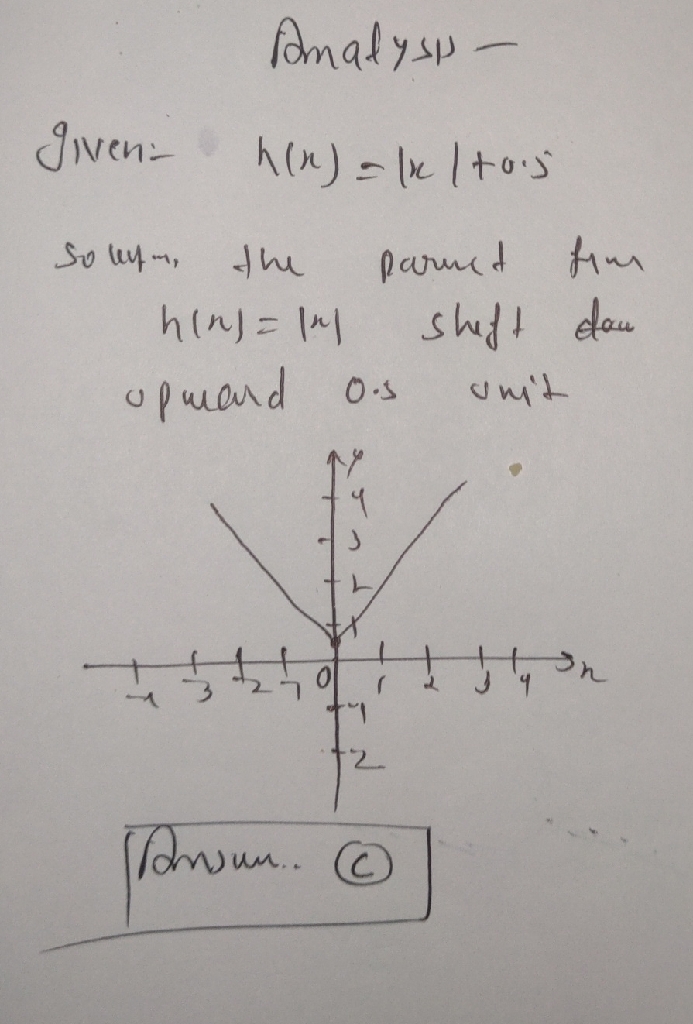 Analysis –
Given:- h(x) = |x| + 0.5
Solution, the parent
h(x) = |x| shift
upward 0.5 unit
y
4
3
2
1
-4 -3 -2 -1 0 1 2 3 4 x
-1
-2
Answer.. (C)